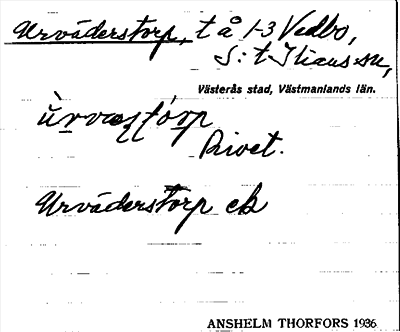 Urväderstorp, t å 1-3 Vedbo,
S:t Ilians sn,
Västerås stad, Västmanlands län.
Rivet.
Urväderstorp ek
ANSHELM THORFORS 1936